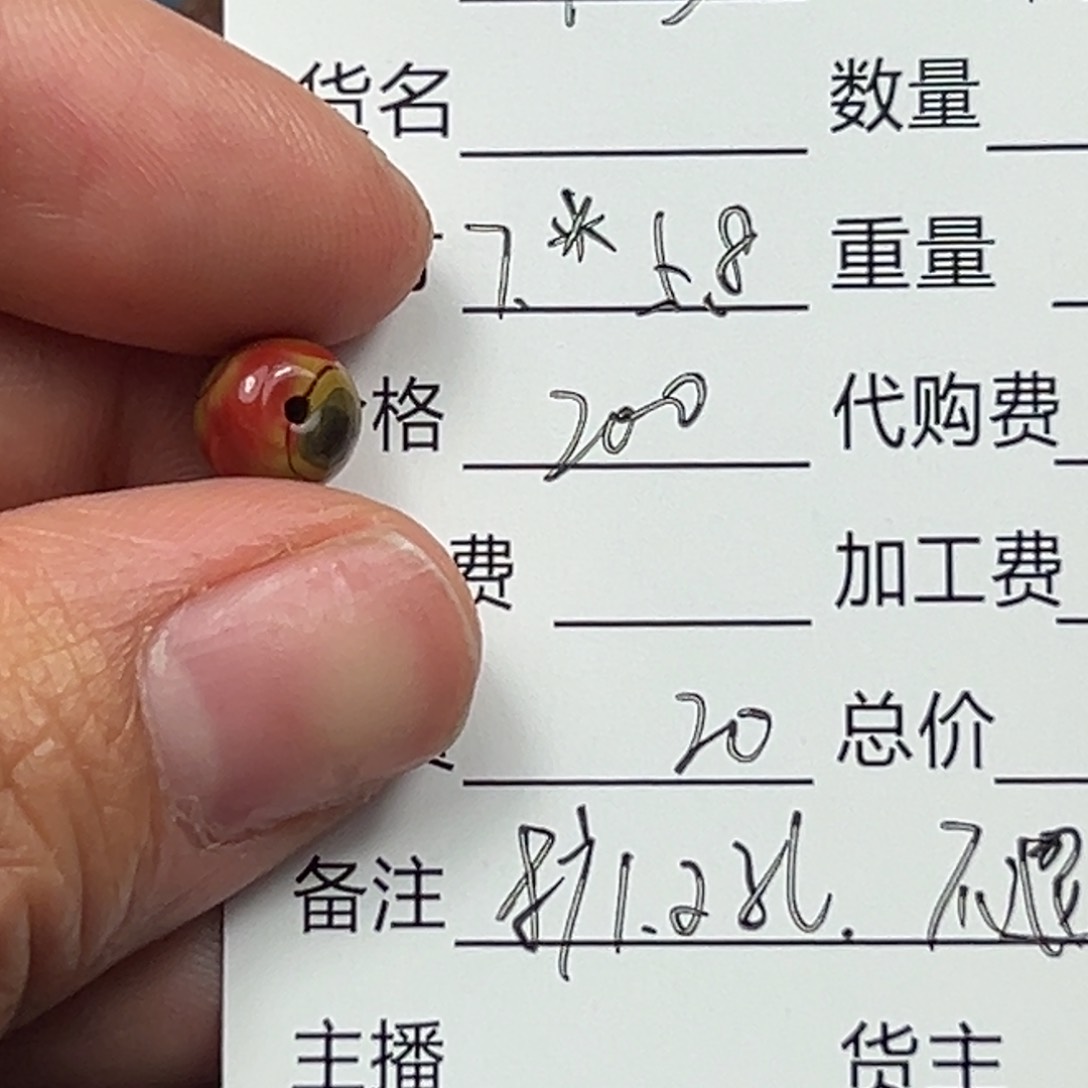 货名 数量
7.*5.8 重量
格 200 代购费
费 加工费
20 总价
备注 扩1.2孔. 不退
主播 货主